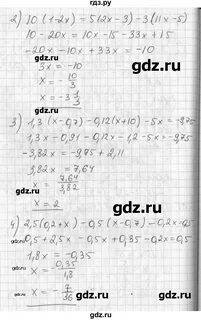 гдз.ру
2) 10(1-2x) = 5(2x-3) - 3(11x-5)
10 - 20x = 10x - 15 - 33x + 15
-20x - 10x + 33x = -10
3x = -10
x = -10/3
x = -3 1/3
3) 1,3(x-0,7) - 0,12(x+10) - 5x = -9,75
1,3x - 0,91 - 0,12x - 1,2 - 5x = -9,75
-3,82x = -9,75 + 2,11
-3,82x = 7,64
x = 7,64/3,82
x = 2
4) 2,5(0,2+x) - 0,5(x-0,7) - 0,2x =
0,5 + 2,5x - 0,5x + 0,35 - 0,2x = 0,5
1,8x = -0,35
x = -0,35/1,8
x = -7/36
gdz.ru